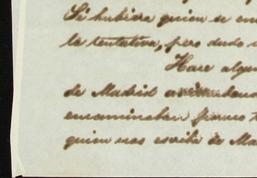 Si hubiera quien se en
la tentativa, pero dudo
Hace algu
de Madrid
encaminaban
quien nos escribe de Ma